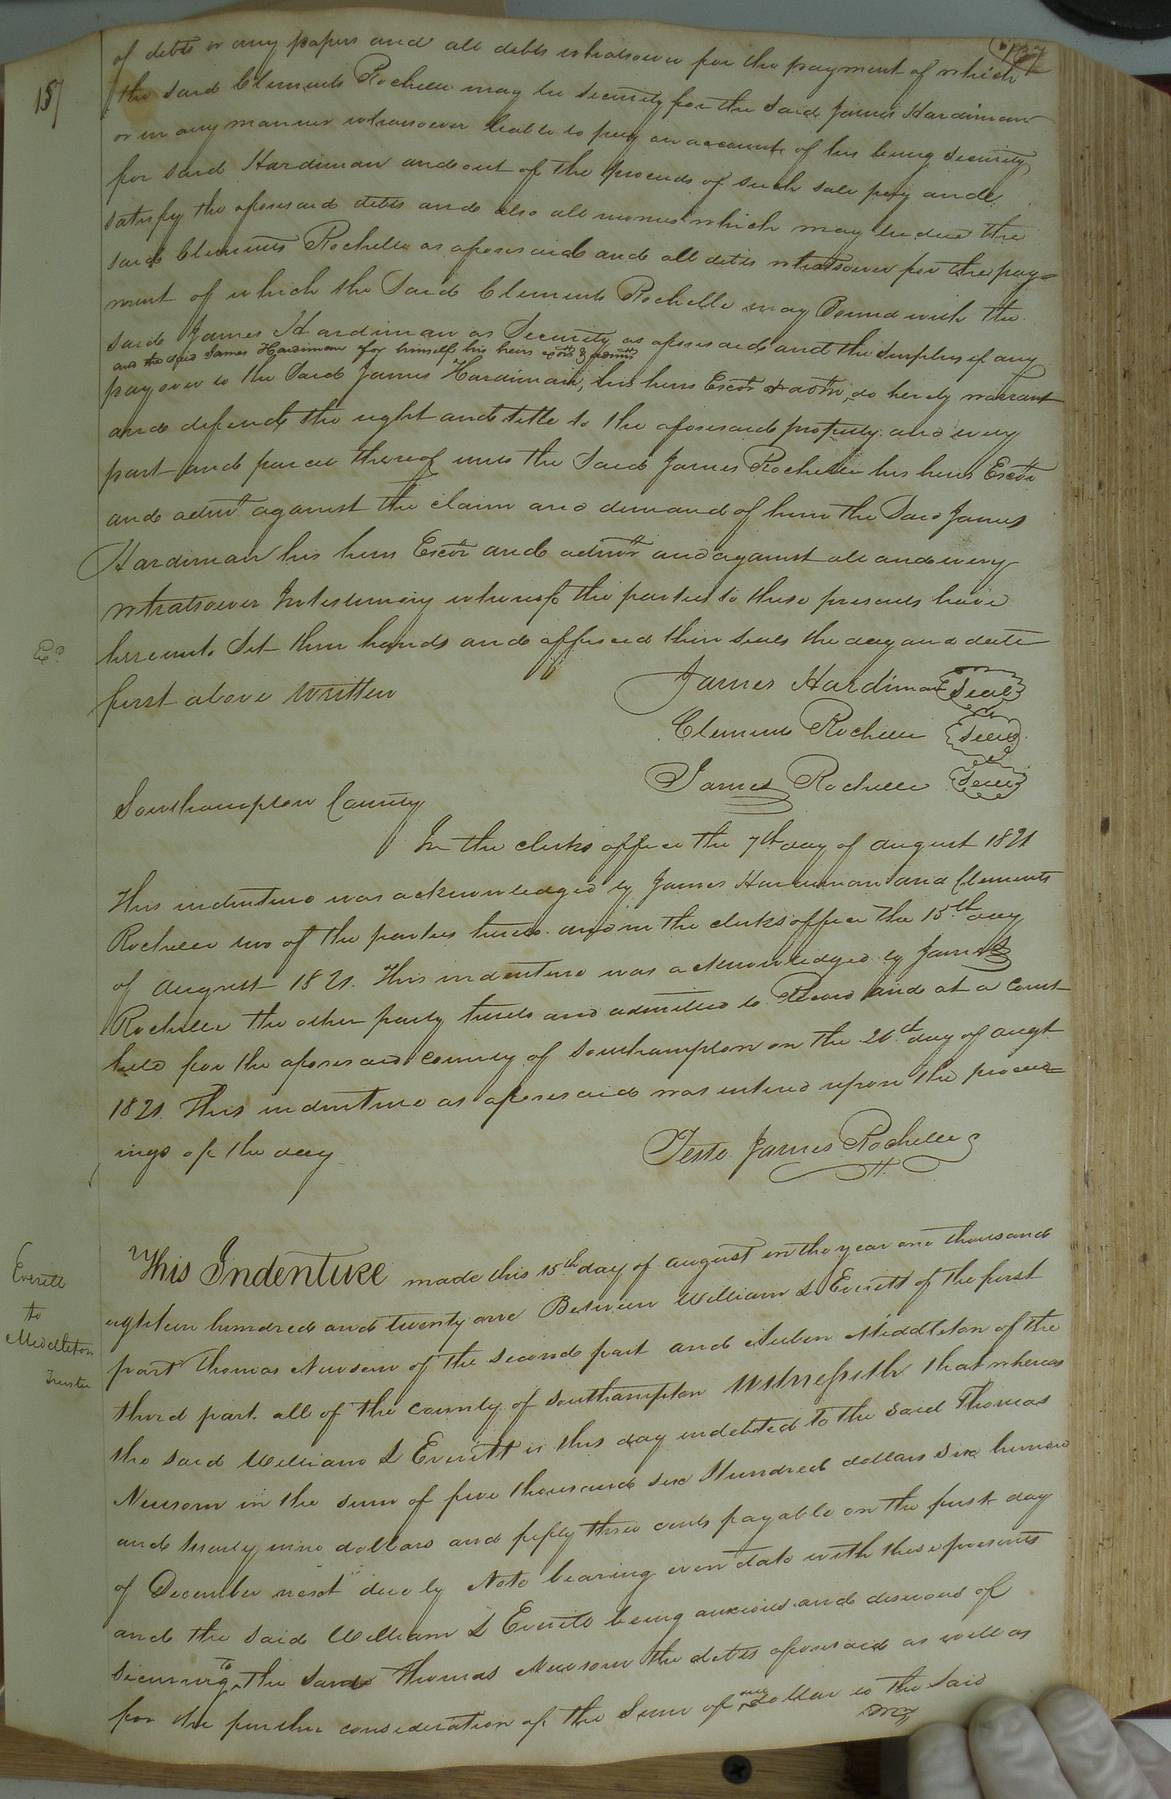 157
137
of debts or any papers and all debts whatsoever for the payment of which
the said Clements Rochelle may be security for the said James Hardiman
or in any manner whatsoever liable to pay on account of his being security
for said Hardiman and out of the proceeds of such sale pay and
satisfy the aforesaid debts and also all monies which may be due the
said Clements Rochelle as aforesaid and all debts whatsoever for the pay=
ment of which the Said Clements Rochelle may Bound with the
said James Hardiman as Security as aforesaid and the Surplus if any
and the said James Hardiman for himself his heirs exors & admrs
pay over to the Said James Hardiman, his heirs Exors & adm, do hereby warrant
and defend the right and title to the aforesaid property and every
part and parcel thereof unto the Said James Rochelle his heirs Exors
and admrs against the claim and demand of him the Said James
Hardiman his heirs Exors and admrs and against all and every
whatsoever In testimony whereof the parties to these presents have
hereunto Set their hands and affixed their seals the day and date
first above Written
Exd
James Hardiman Seal
Clements Rochelle Seal
James Rochelle Seal
Southampton County
In the clerks office the 7th day of august 1821
This indenture was acknowledged by James Hardiman and Clements
Rochelle two of the parties thereto and in the clerks office the 15th day
of August 1821. This indenture was acknowledged by James
Rochelle the other party thereto and admitted to Record and at a Court
held for the aforesaid county of Southampton on the 20th day of augt
1821. This indenture as aforesaid was entered upon the proceed=
ings of the day
Teste James Rochelle
Everitt
to
Middleton
Trustee
This Indenture made this 15th day of august in the year one thousand
eighteen hundred and twenty one Between William L Everitt of the first
part Thomas Newsom of the second part and Middleton of the
third part all of the county of Southampton Witnesseth that whereas
the said William L Everitt is this day indebted to the said Thomas
Newsom in the sum of five thousand six Hundred dollars six hundred
and ninety nine dollars and fifty three cents payable on the first day
of December next due by Note bearing even date with these presents
and the said William L Everitt being anxious and desirous of
securing to the said Thomas Newsom the debts aforesaid as well as
for the further consideration of the Sum of one Dollar to the said